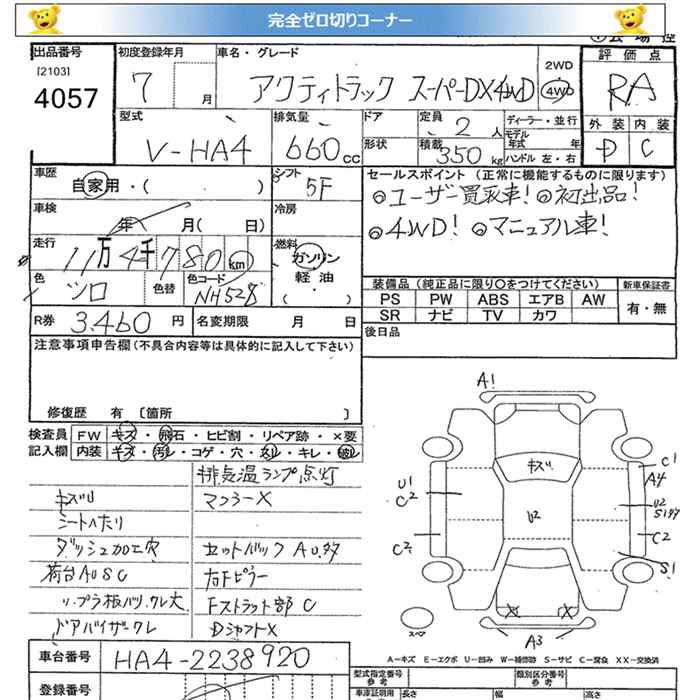 完全ゼロ切りコーナー
出品番号 初度登録年月 車名・グレード 評価点
[2103]
4057 7 月 アクティトラック スーパーDX4WD 2WD 4WD RA
型式 排気量 ドア 定員 2 人 ディーラー・並行 外装 内装
V-HA4 660cc 形状 積載 350kg モデル年式 年 ハンドル 左・右 D C
車歴 シフト セールスポイント (正常に機能するものに限ります)
自家用・( ) 5F ◎ユーザー買取車! ◎初出品!
車検 冷房 ◎4WD! ◎マニュアル車!
年 月( 日)
走行 燃料
11万4千780km ガソリン
軽油
色 色替 色コード ・( )
シロ NH528
装備品 (純正品に限り○をつけてください) 新車保証書
PS PW ABS エアB AW 有・無
SR ナビ TV カワ
R券 3,460円 名変期限 月 日 後日品
注意事項申告欄(不具合内容等は具体的に記入して下さい)
修復歴 有 [箇所 ]
検査員 FW キズ・飛石・ヒビ割・リペア跡・×要
記入欄 内装 キズ・汚れ・コゲ・穴・・キレ・
排気温ランプ点灯
キズU マフラーX
シートヘたり
ダッシュ加工穴 セットバック AU多
荷台AUSC 右Fピラー
リ、プラ板バリ、クレ大 Fストラット部 C
ドアバイザークレ DシャフトX
A1
キズ C1
A4
U1
C2 U2 U2
C2 C2
S1
X X
スペア A3
A-キズ E-エクボ U-凹み W-補修跡 S-サビ C-腐食 XX-交換済
車台番号 HA4-2238920
登録番号
型式指定番号 参考 類別区分番号 参考
車庫証明用 参考 長さ 幅 高さ